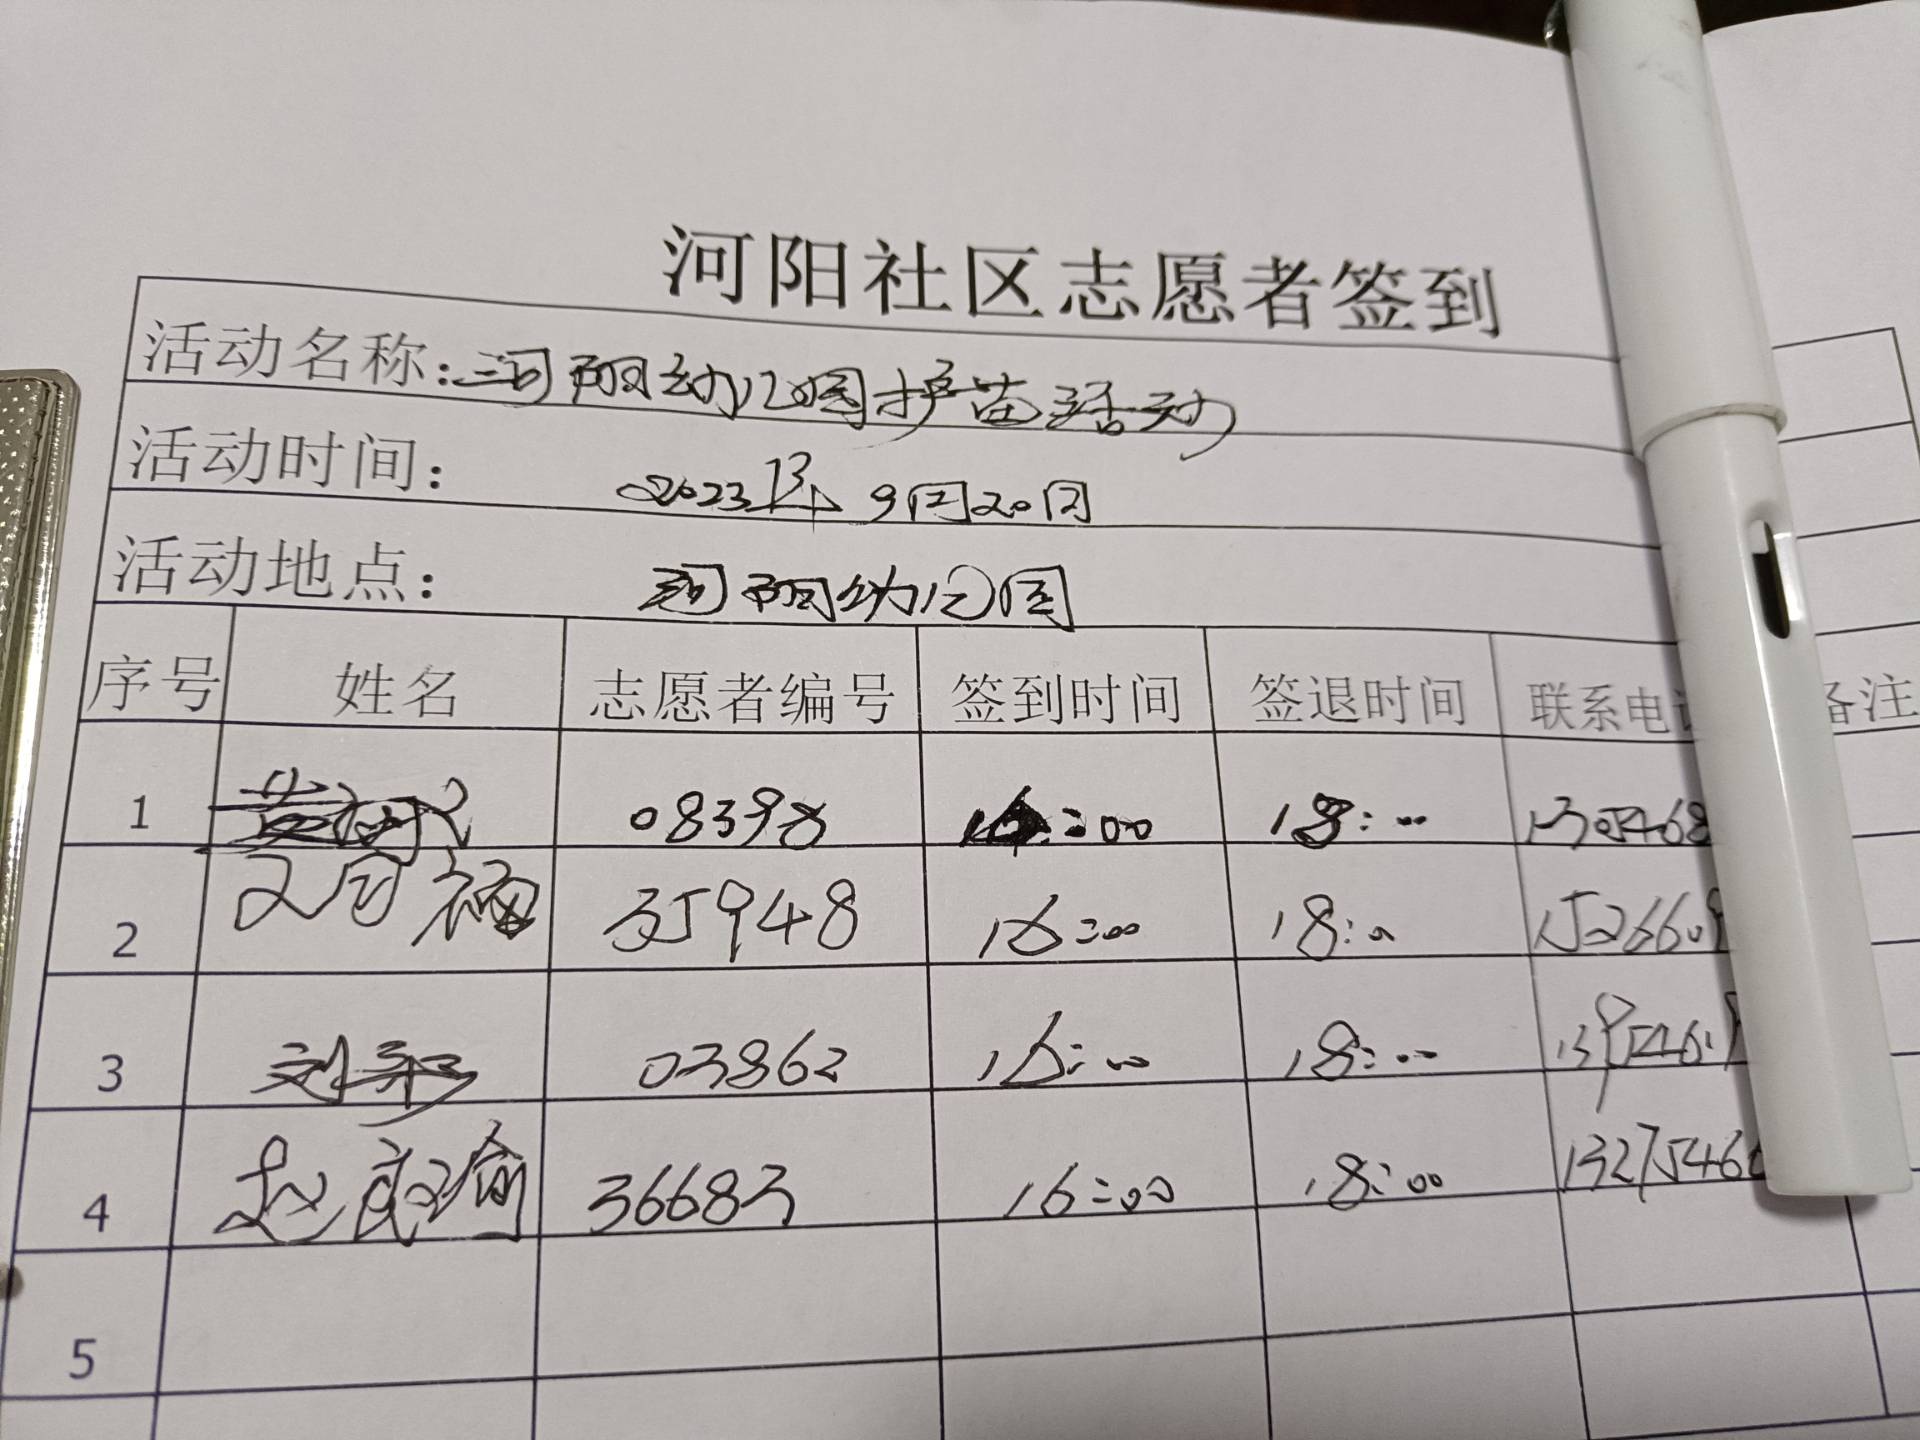 河阳社区志愿者签到
活动名称:河阳幼儿园护苗活动
活动时间: 2023年 9月20日
活动地点: 河阳幼儿园
序号 姓名 志愿者编号 签到时间 签退时间 联系电 备注
1 08398 16:00 18:00 1305468
2 35948 16:00 18:00 1526609
3 刘彩 03862 16:00 18:00
4 赵 瑜 36683 16:00 18:00 1327546
5